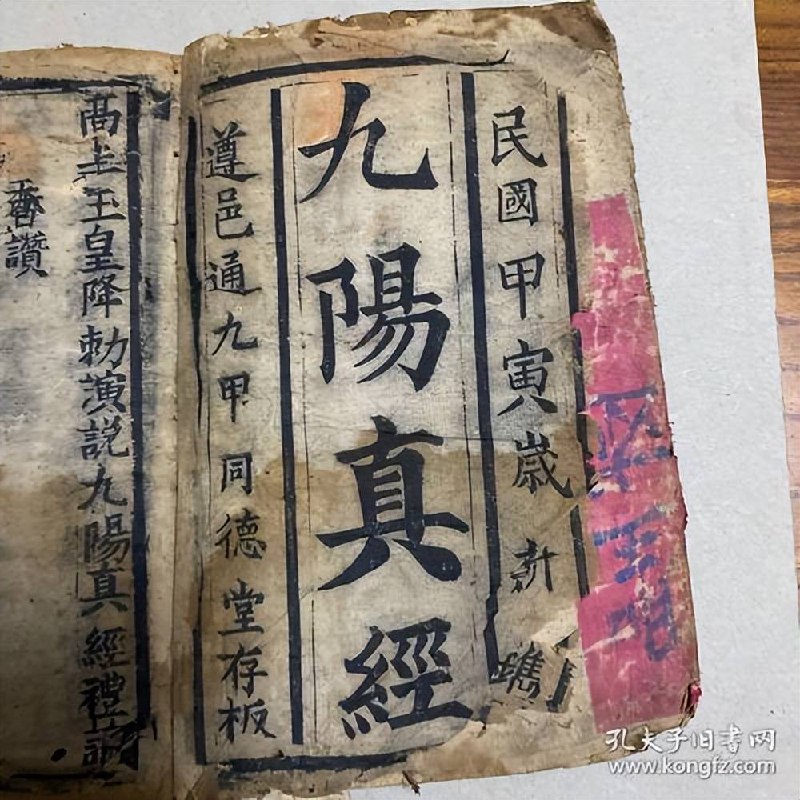 民國甲寅歲新鐫
九陽真經
遵邑通九甲同德堂存板
高上玉皇降勅演説九陽真經禮請
香讚
孔夫子旧书网
www.kongfz.com